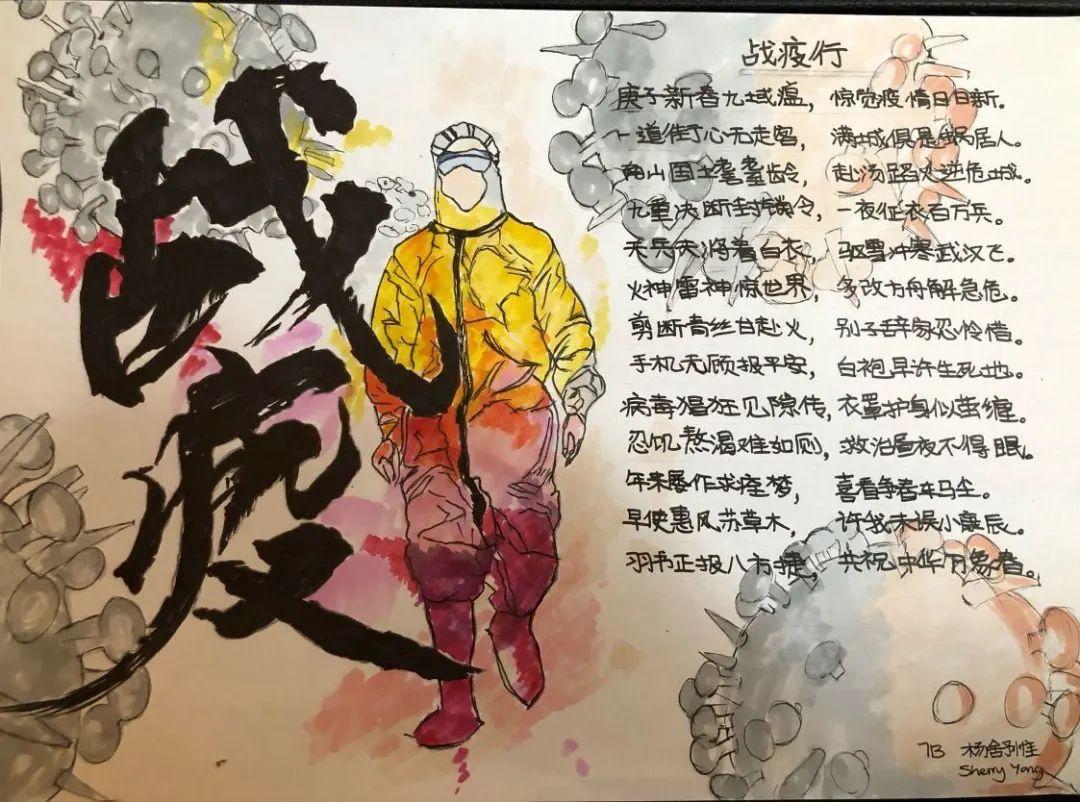 战疫
战疫行
庚子新春九域瘟，惊觉疫情日日新。
一道街心无走客，满城俱是蜗居人。
南山国士耄耋龄，赴汤蹈火逆危城。
九重决断封锁令，一夜征衣百万兵。
天兵天将着白衣，驱雪冲寒武汉飞。
火神雷神惊世界，多改方舟解急危。
剪断青丝甘赴火，别子辞家忍怜惜。
手机无顾报平安，白袍早许生死地。
病毒猖狂见隙传，衣罩护身似茧缠。
忍饥熬渴难如厕，救治昼夜不得眠。
年来屡作求痊梦，喜看争春车马尘。
早使惠风苏草木，许我未误小康辰。
羽书正报八方捷，共祝中华万象春。
7B 杨
Sherry Yang